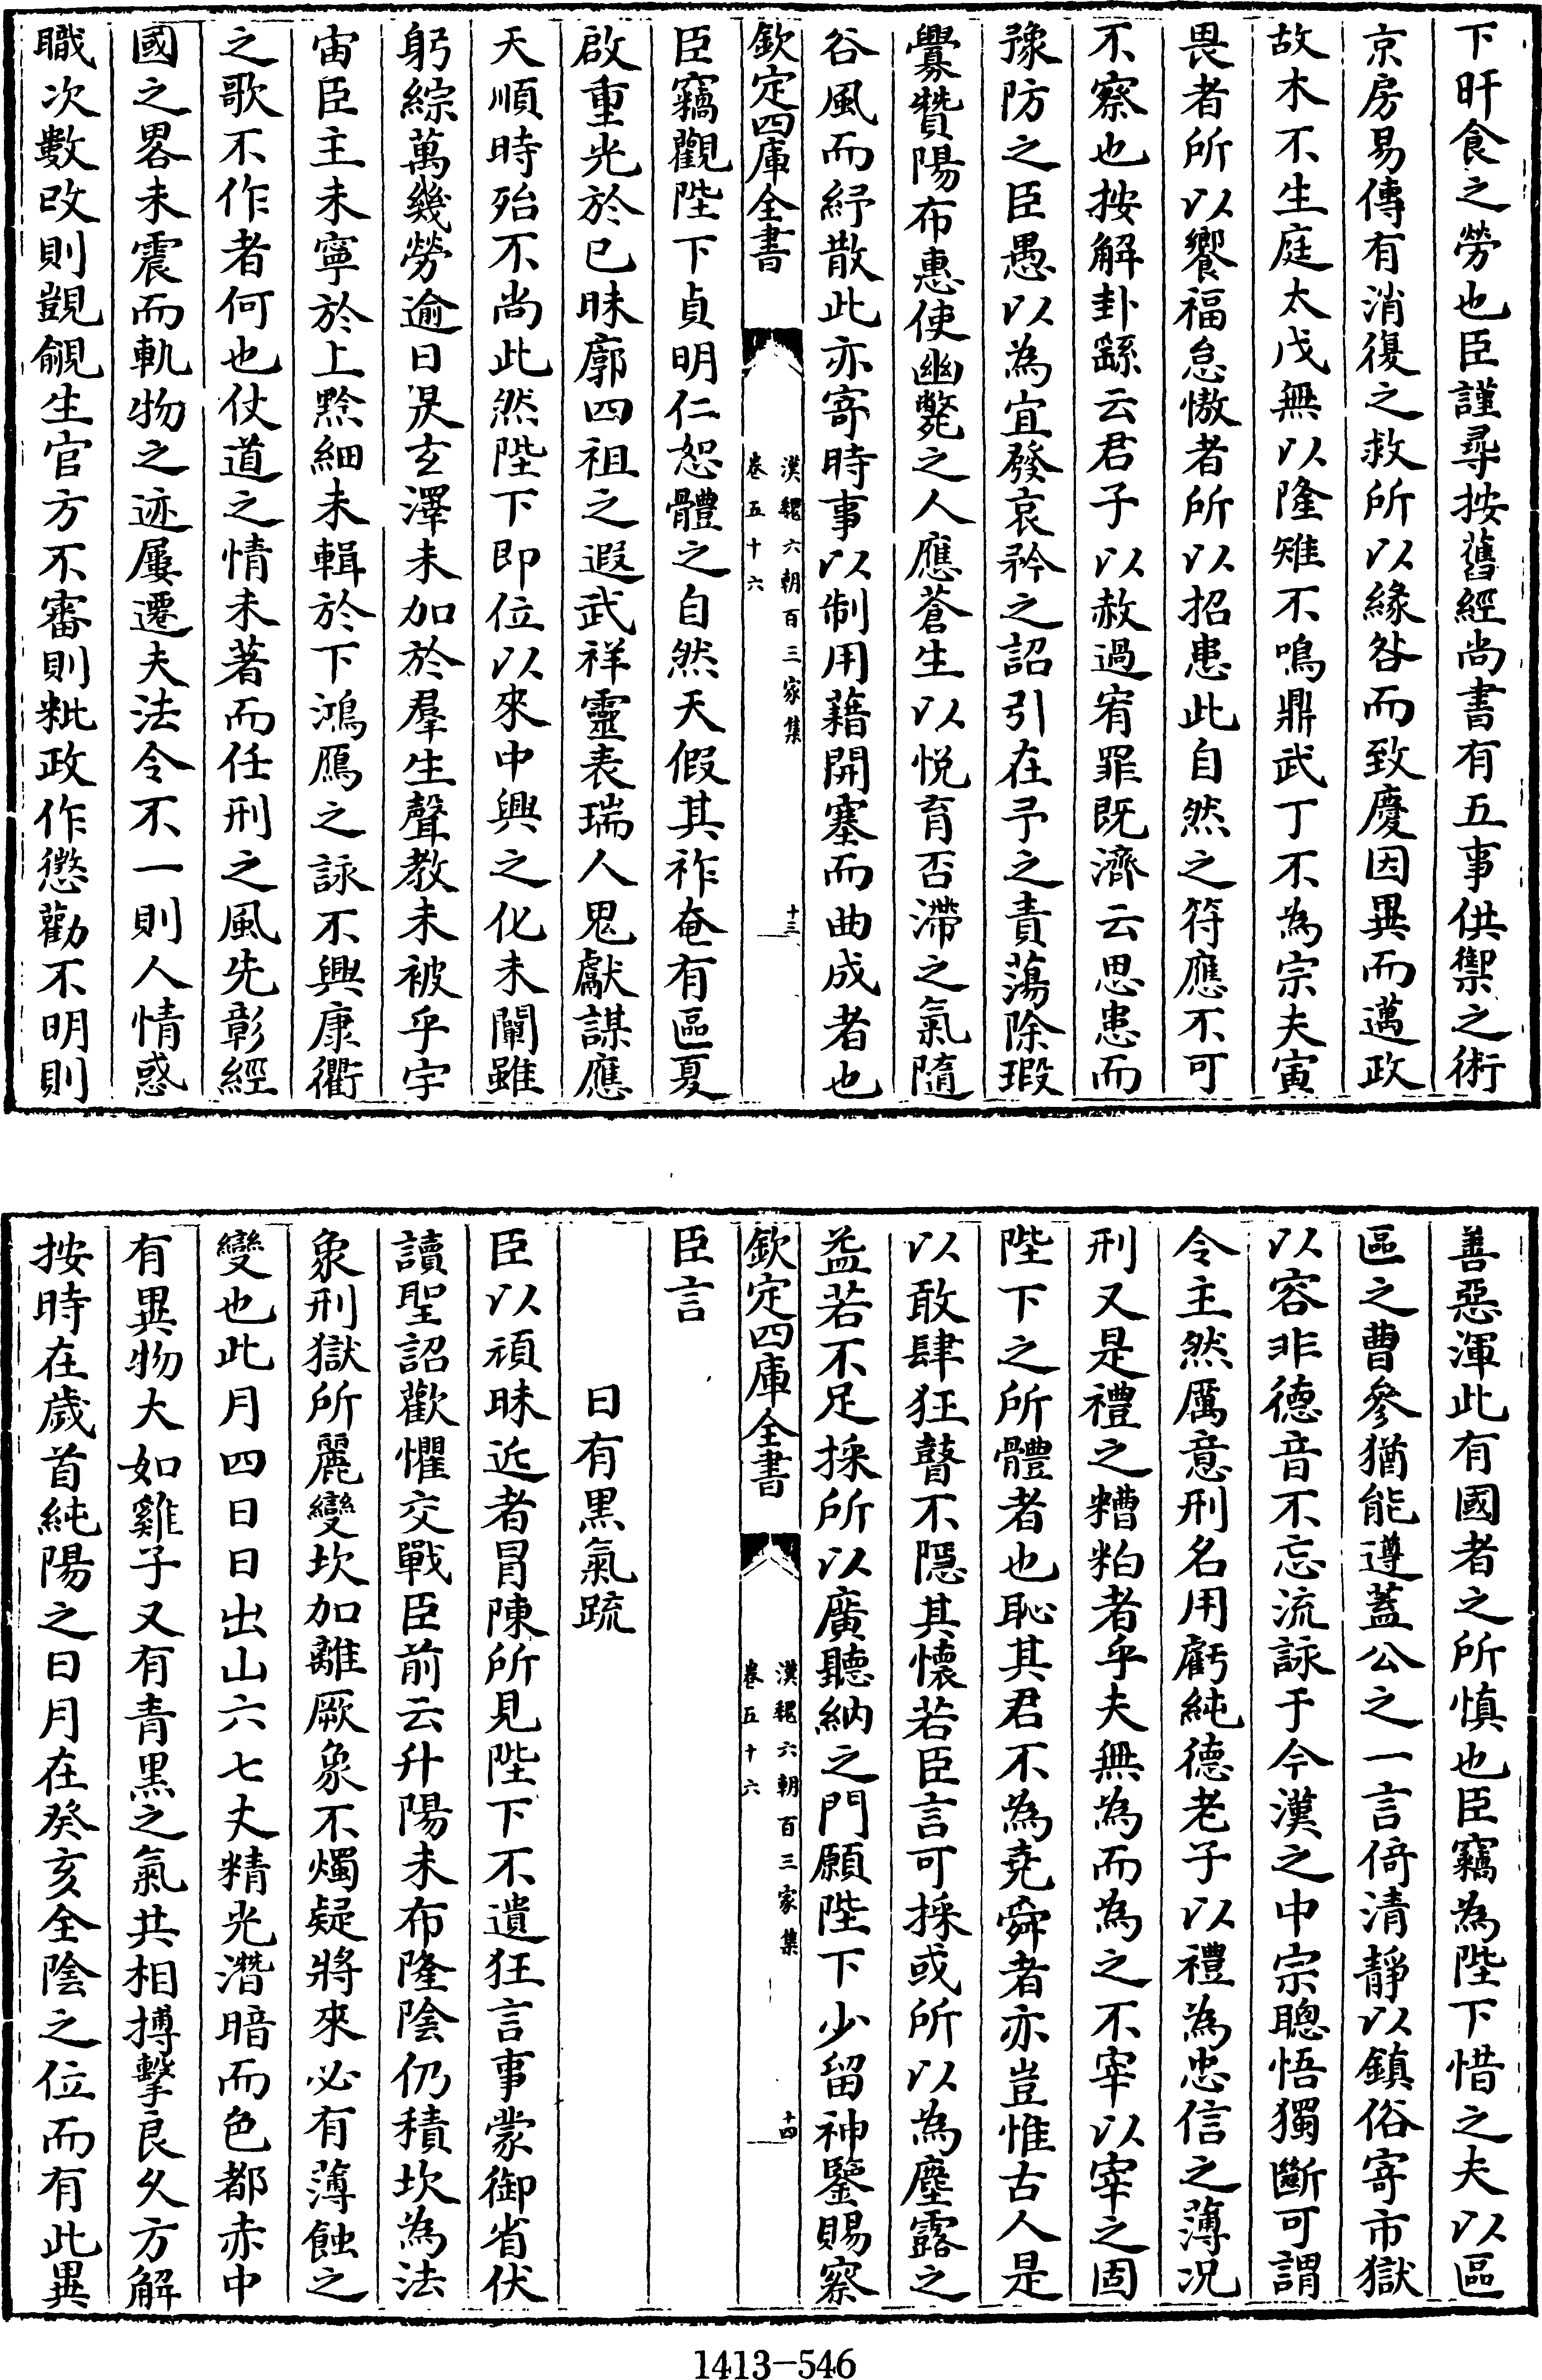 下旰食之勞也臣謹尋按舊經尚書有五事供禦之術
京房易傳有消復之救所以緣咎而致慶因異而邁政
故木不生庭太戊無以隆雉不鳴鼎武丁不為宗夫寅
畏者所以饗福怠傲者所以招患此自然之符應不可
不察也按解卦繇云君子以赦過宥罪既濟云思患而
豫防之臣愚以為宜發哀矜之詔引在予之責蕩除瑕
釁贊陽布惠使幽斃之人應蒼生以悅育否滯之氣隨
谷風而紓散此亦寄時事以制用藉開塞而曲成者也
欽定四庫全書
漢魏六朝百三家集
卷五十六
十三
臣竊觀陛下貞明仁恕體之自然天假其祚奄有區夏
啟重光於已昧廓四祖之遐武祥靈表瑞人鬼獻謀應
天順時殆不尚此然陛下即位以來中興之化未闡雖
躬綜萬幾勞逾日昃玄澤未加於羣生聲教未被乎宇
宙臣主未寧於上黔細未輯於下鴻鴈之詠不興康衢
之歌不作者何也仗道之情未著而任刑之風先彰經
國之畧未震而軌物之迹屢遷夫法令不一則人情惑
職次數改則覬覦生官方不審則粃政作懲勸不明則
善惡渾此有國者之所慎也臣竊為陛下惜之夫以區
區之曹參猶能遵蓋公之一言倚清靜以鎮俗寄市獄
以容非德音不忘流詠于今漢之中宗聰悟獨斷可謂
令主然厲意刑名用虧純德老子以禮為忠信之薄况
刑又是禮之糟粕者乎夫無為而為之不宰以宰之固
陛下之所體者也恥其君不為堯舜者亦豈惟古人是
以敢肆狂瞽不隱其懷若臣言可採或所以為塵露之
益若不足採所以廣聽納之門願陛下少留神鑒賜察
欽定四庫全書
漢魏六朝百三家集
卷五十六
十四
臣言
日有黑氣疏
臣以頑昧近者冒陳所見陛下不遺狂言事蒙御省伏
讀聖詔歡懼交戰臣前云升陽未布隆陰仍積坎為法
象刑獄所麗變坎加離厥象不燭疑將來必有薄蝕之
變也此月四日日出山六七丈精光潛暗而色都赤中
有異物大如雞子又有青黑之氣共相搏擊良久方解
按時在歲首純陽之日月在癸亥全陰之位而有此異
1413-546